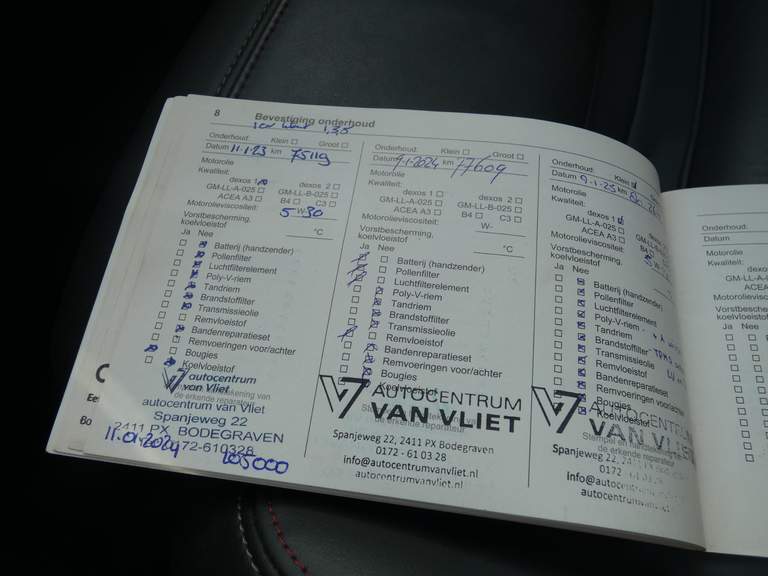 8
Bevestiging onderhoud
1,3,5
Onderhoud: Klein Groot
Datum 11-1-23 km 75119
Motorolie
Kwaliteit: dexos 1 dexos 2
GM-LL-A-025 GM-LL-B-025
ACEA A3 B4 C3
Motorolieviscositeit: 5 W- 30
Vorstbescherming,
koelvloeistof °C
Ja Nee
Batterij (handzender)
Pollenfilter
Luchtfilterelement
Poly-V-riem
Tandriem
Brandstoffilter
Transmissieolie
Remvloeistof
Bandenreparatieset
Remvoeringen voor/achter
Bougies
Koelvloeistof
autocentrum
van Vliet
de erkende reparateur
autocentrum van Vliet
Spanjeweg 22
2411 PX BODEGRAVEN
0172-610328
11.01.2024 205000
Onderhoud: Klein Groot
Datum 9-1-2024 km 77609
Motorolie
Kwaliteit: dexos 1 dexos 2
GM-LL-A-025 GM-LL-B-025
ACEA A3 B4 C3
Motorolieviscositeit: W-
Vorstbescherming,
koelvloeistof °C
Ja Nee
Batterij (handzender)
Pollenfilter
Luchtfilterelement
Poly-V-riem
Tandriem
Brandstoffilter
Transmissieolie
Remvloeistof
Bandenreparatieset
Remvoeringen voor/achter
Bougies
Koelvloeistof
AUTOCENTRUM
VAN VLIET
de erkende reparateur
Spanjeweg 22, 2411 PX Bodegraven
0172 - 61 03 28
info@autocentrumvanvliet.nl
autocentrumvanvliet.nl
Onderhoud: Klein
Datum 9-1-25 km
Motorolie
Kwaliteit: dexos 1
GM-LL-A-025
ACEA A3
Motorolieviscositeit:
Vorstbescherming,
koelvloeistof
Ja Nee
Batterij (handzender)
Pollenfilter
Luchtfilterelement
Poly-V-riem
Tandriem
Brandstoffilter
Transmissieolie
Remvloeistof
Bandenreparatieset
Remvoeringen voor/achter
Bougies
Koelvloeistof
AUTOCENTRUM
VAN VLIET
Stempel en
de erkende reparateur
Spanjeweg 22,
0172
info@autocentrumvanvliet
autocentrumvan
Onderhoud:
Datum
Motorolie
Kwaliteit:
GM-LL-A
ACEA
Motorolieviscosite
Vorstbescherming
koelvloeistof
Ja Nee